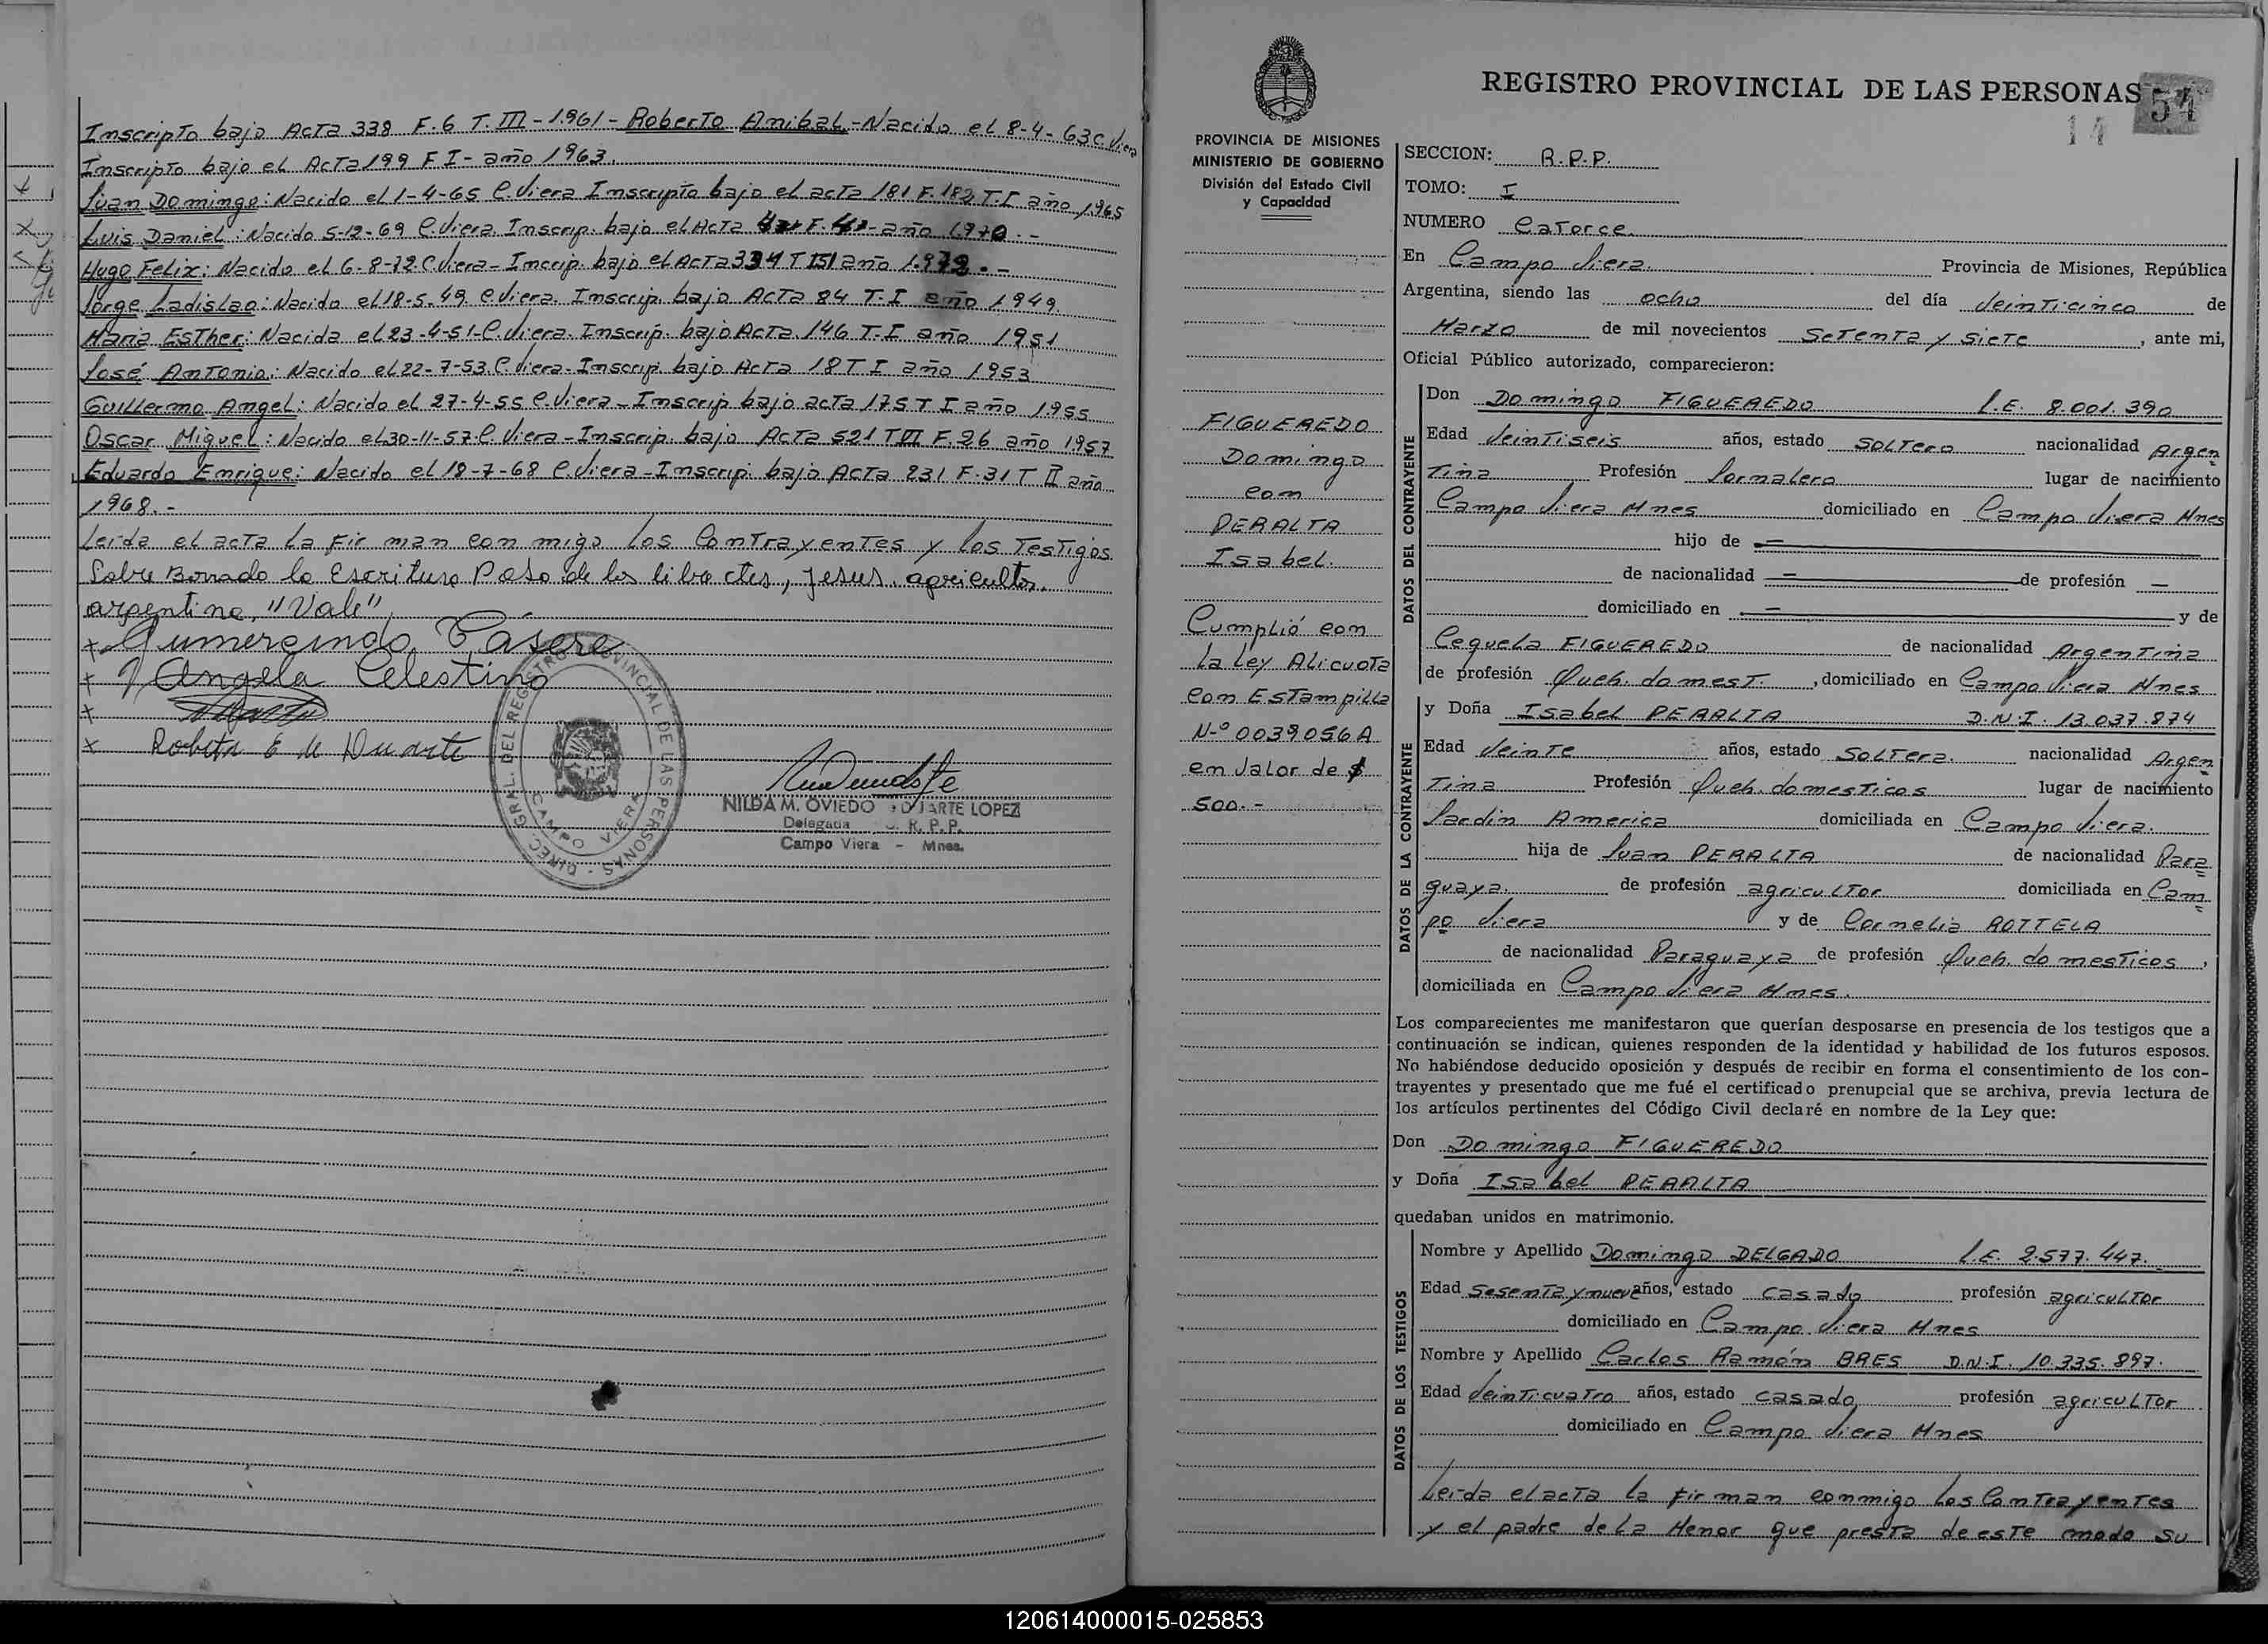 Inscripto bajo Acta 338 F.6 T. III - 1961 - Roberto Anibal - Nacido el 8-4-63 C. Viera
Inscripto bajo el Acta 199 F I - año 1963.
Juan Domingo: Nacido el 1-4-65 C. Viera Inscripto bajo el acta 181 F. 182 T. I año 1965
Luis Daniel: Nacido 5-12-69 C. Viera Inscrip. bajo el Acta F. - año 1970. -
Hugo Felix: Nacido el 6-8-72 C. Viera - Inscrip. bajo el Acta 334 T año 1.972. -
Jorge Ladislao: Nacido el 18-5-49 C. Viera. Inscrip. bajo Acta 84 T. I año 1949.
Maria Esther: Nacida el 23-4-51 - C. Viera. Inscrip. bajo Acta 146 T. I año 1951
José Antonio: Nacido el 22-7-53 C. Viera - Inscrip. bajo Acta 18 T I año 1953
Guillermo Angel: Nacido el 27-4-55 C. Viera - Inscrip bajo acta 175 T I año 1955
Oscar Miguel: Nacido el 30-11-57 C. Viera - Inscrip. bajo Acta 521 T III F. 26 año 1957
Eduardo Enrique: Nacido el 18-7-68 C. Viera - Inscrip. bajo Acta 231 F. 31 T II año
1968. -
Leida el acta la firman con migo los Contrayentes y los Testigos.
Sobre Borrado lo Escritura Paso de los libre ctes, Jesus, agricultor,
argentina, "Vale"
x Gumercindo Cásere
x Angela Celestino
x
x Robeta E de Duarte
DIREC. GRAL. DEL REGISTRO PROVINCIAL DE LAS PERSONAS - CAMPO VIERA
NILDA M. OVIEDO DUARTE LOPEZ
Delegada R. P. P.
Campo Viera - Mnes.
REGISTRO PROVINCIAL DE LAS PERSONAS
54
14
PROVINCIA DE MISIONES
MINISTERIO DE GOBIERNO
División del Estado Civil
y Capacidad
FIGUEREDO
Domingo
con
PERALTA
Isabel.
Cumplió con
la Ley Alicuota
con Estampilla
Nº 0039056A
en Valor de $
500.-
SECCION: R.P.P.
TOMO: I
NUMERO Catorce
En Campo Viera Provincia de Misiones, República
Argentina, siendo las ocho del día Veinticinco de
Marzo de mil novecientos Setenta y Siete, ante mi,
Oficial Público autorizado, comparecieron:
DATOS DEL CONTRAYENTE
Don Domingo FIGUEREDO L.E. 8.001.390
Edad Veintiseis años, estado Soltero nacionalidad Argen
tina Profesión Jornalero lugar de nacimiento
Campo Viera Mnes domiciliado en Campo Viera Mnes
hijo de —
de nacionalidad — de profesión —
domiciliado en — y de
Cequela FIGUEREDO de nacionalidad Argentina
de profesión Queh. domest., domiciliado en Campo Viera Mnes
DATOS DE LA CONTRAYENTE
y Doña Isabel PERALTA D.N.I. 13.037.874
Edad Veinte años, estado Soltera. nacionalidad Argen
tina Profesión Queh. domesticos lugar de nacimiento
Jardin America domiciliada en Campo Viera.
hija de Juan PERALTA de nacionalidad Para
guaya. de profesión agricultor domiciliada en Cam
po Viera y de Cornelia ROTTELA
de nacionalidad Paraguaya de profesión Queh. domesticos,
domiciliada en Campo Viera Mnes.
Los comparecientes me manifestaron que querían desposarse en presencia de los testigos que a
continuación se indican, quienes responden de la identidad y habilidad de los futuros esposos.
No habiéndose deducido oposición y después de recibir en forma el consentimiento de los con-
trayentes y presentado que me fué el certificado prenupcial que se archiva, previa lectura de
los artículos pertinentes del Código Civil declaré en nombre de la Ley que:
Don Domingo FIGUEREDO
y Doña Isabel PERALTA
quedaban unidos en matrimonio.
DATOS DE LOS TESTIGOS
Nombre y Apellido Domingo DELGADO L.E. 2.577.447.
Edad Sesenta y nueve años, estado casado profesión agricultor
domiciliado en Campo Viera Mnes
Nombre y Apellido Carlos Ramón BRES D.N.I. 10.335.897.
Edad Veinticuatro años, estado casado profesión agricultor
domiciliado en Campo Viera Mnes
Leida el acta la firman conmigo los Contrayentes
y el padre de la Menor que presta de este modo su
120614000015-025853